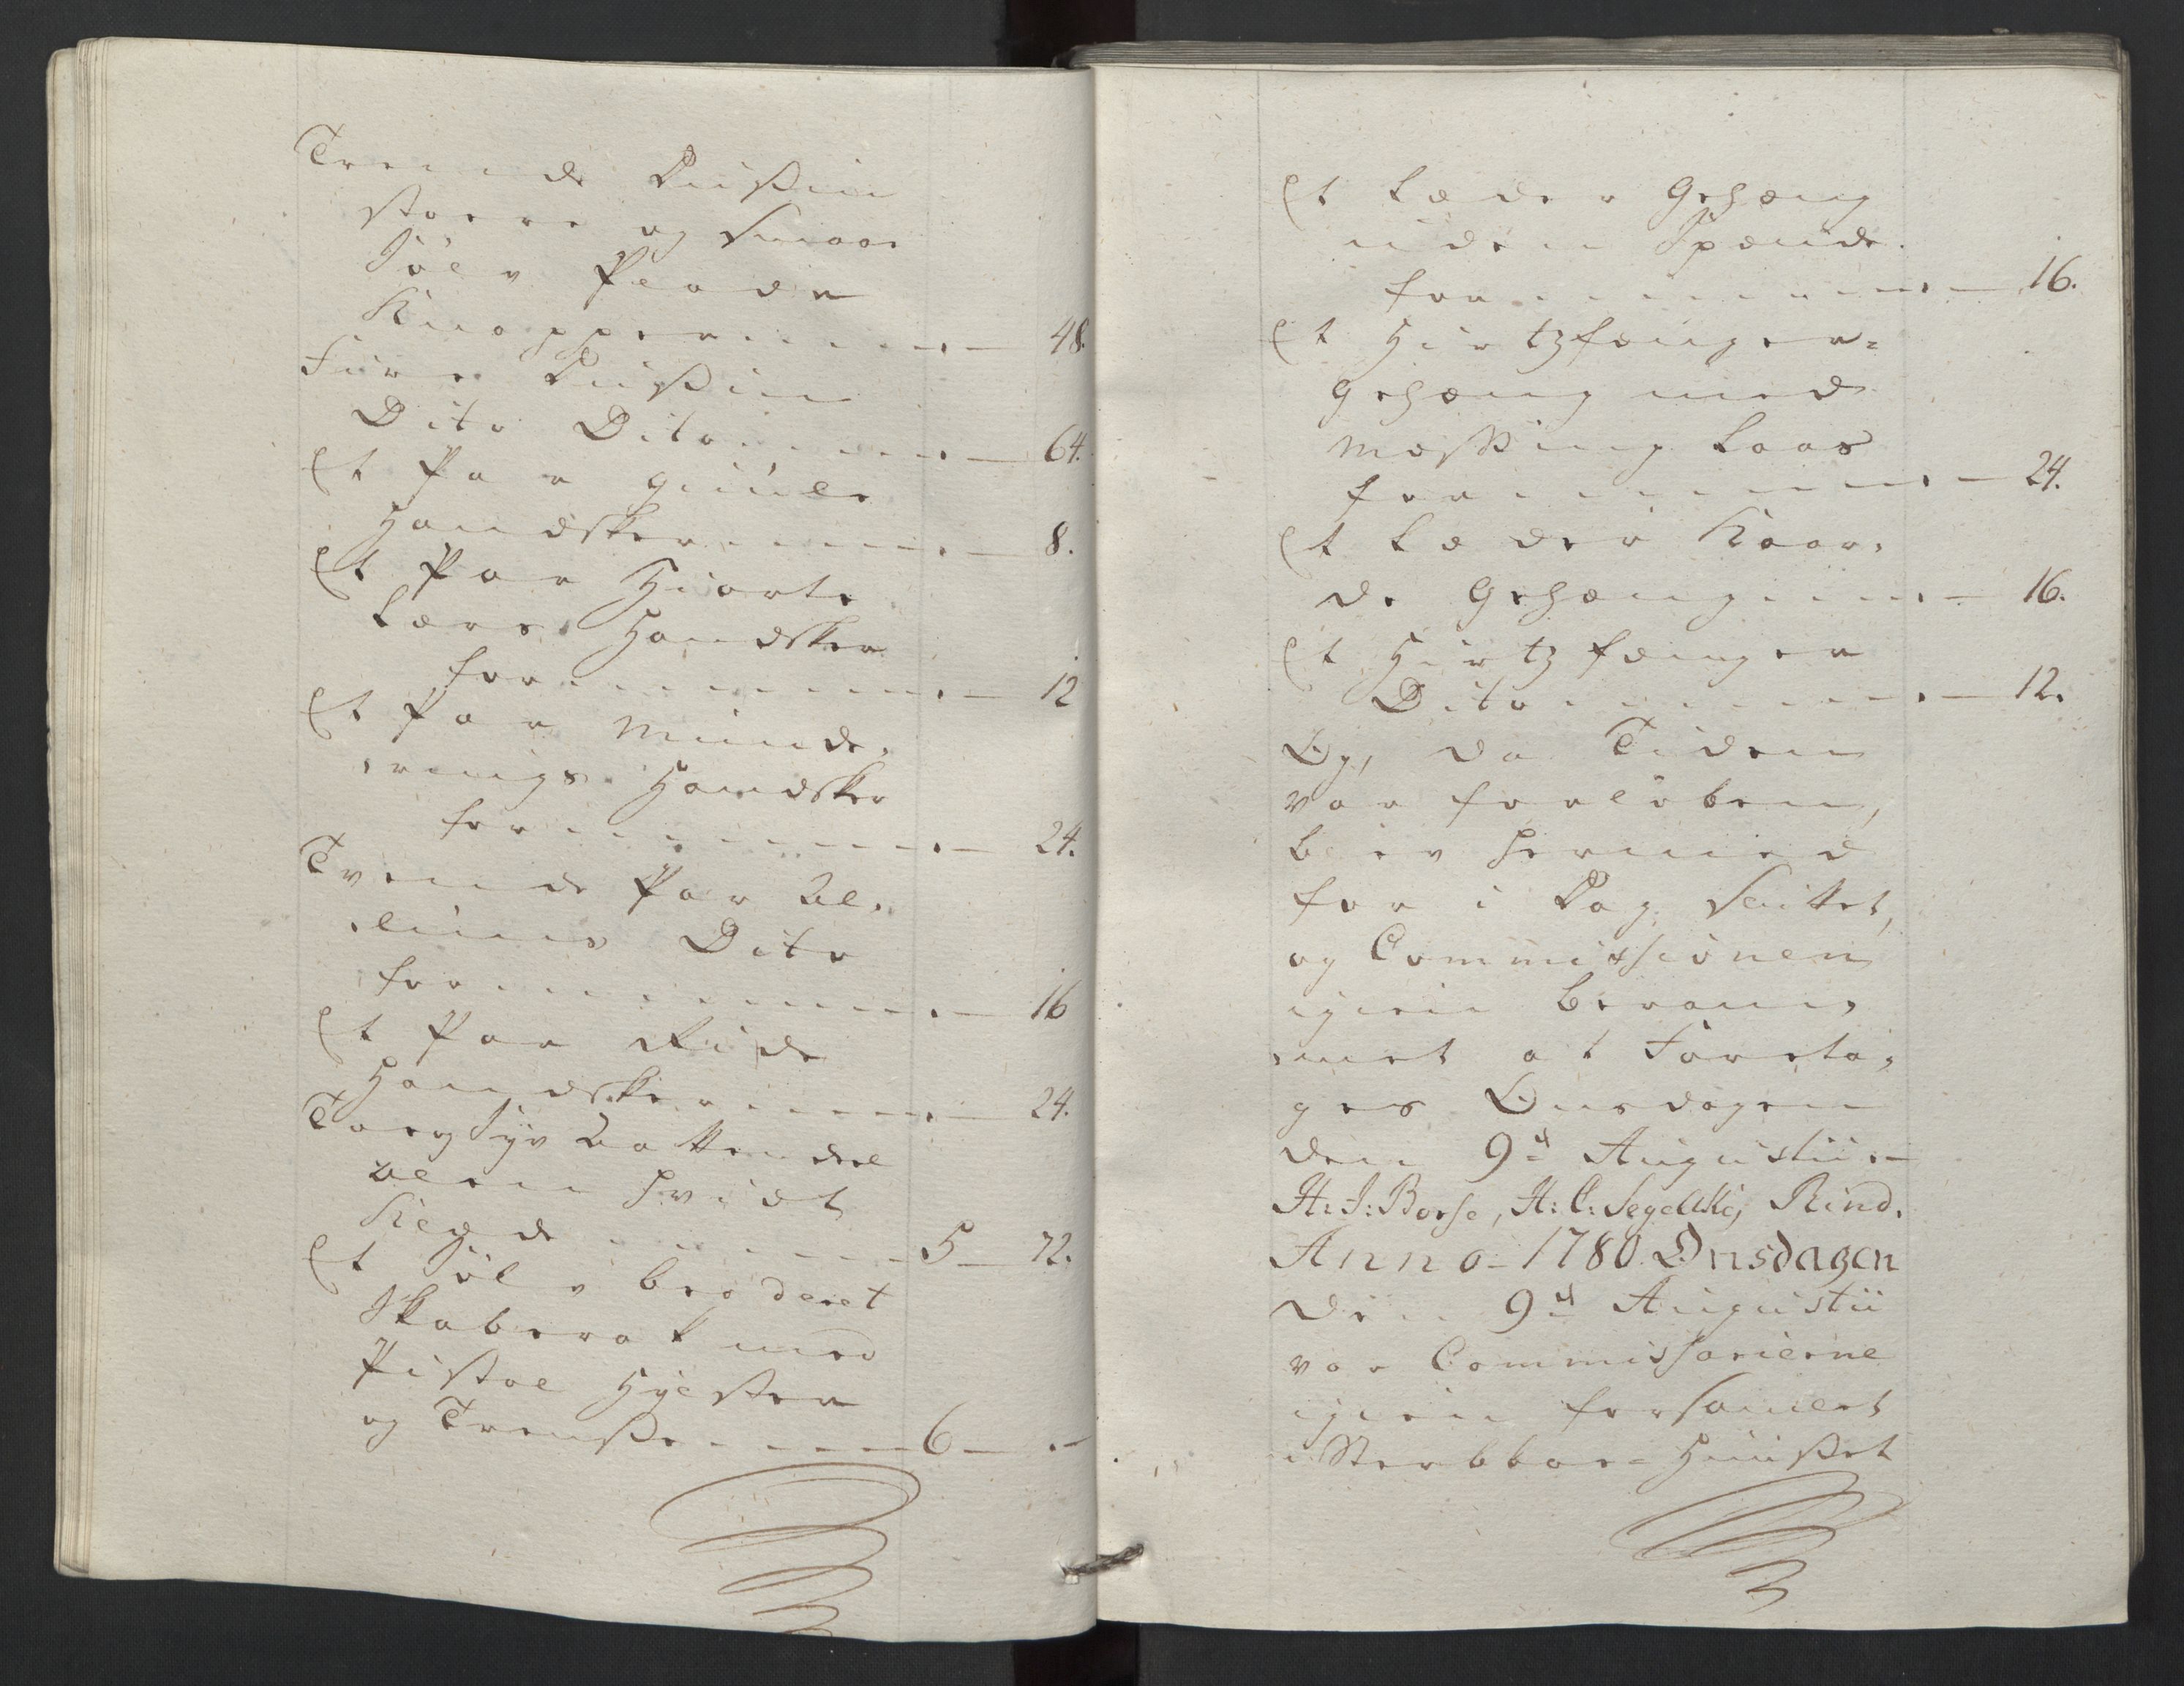 Trende Dusßin
stoere og Smaae
Sölv Plade
Knapper - - - . — 48.
Fiire Dusßin
Dito Dito - - - . — 64.
Et Par guule
Handsker - - - . — 8.
Et Par Hiorte
Lærs Handsker
for - - - . — 12
Et Par Munde,
,rings Handsker
for - - - . — 24.
Tvende Par Ul,
,lene Dito
for - - - . — 16
Et Par Ride
Handsker - - - . — 24.
Toeg Syv Aottendeel
Alen hvidt
Klæde - - - 5 — 72.
Et Sölv broderet
Skaberak med
Pistol Hylster
og Trenße - - - 6 — . -
Et Læder Gehæng
uden Spænde
for - - - . — 16.
Et Hirtzfænger=
Gehæng med
Mesßing Laas
for - - - . — 24.
Et Læder Kaar,
de Gehæng - - - . — 16.
Et Hirtzfænger
Dito - - - . — 12.
Og, da Tiden
var forløben,
blev hermed
for i Dag Sluttet,
og Commissionen
igien beram,
,met at Foreta,
ges Onsdagen
den 9d Augustii. -
H: J: Borse, H: C: Segelkke, Rind.
Anno - 1780. Onsdagen
den 9d Augustii
var Commissarierne
igien forsamlet
i Sterbboe = Huußet